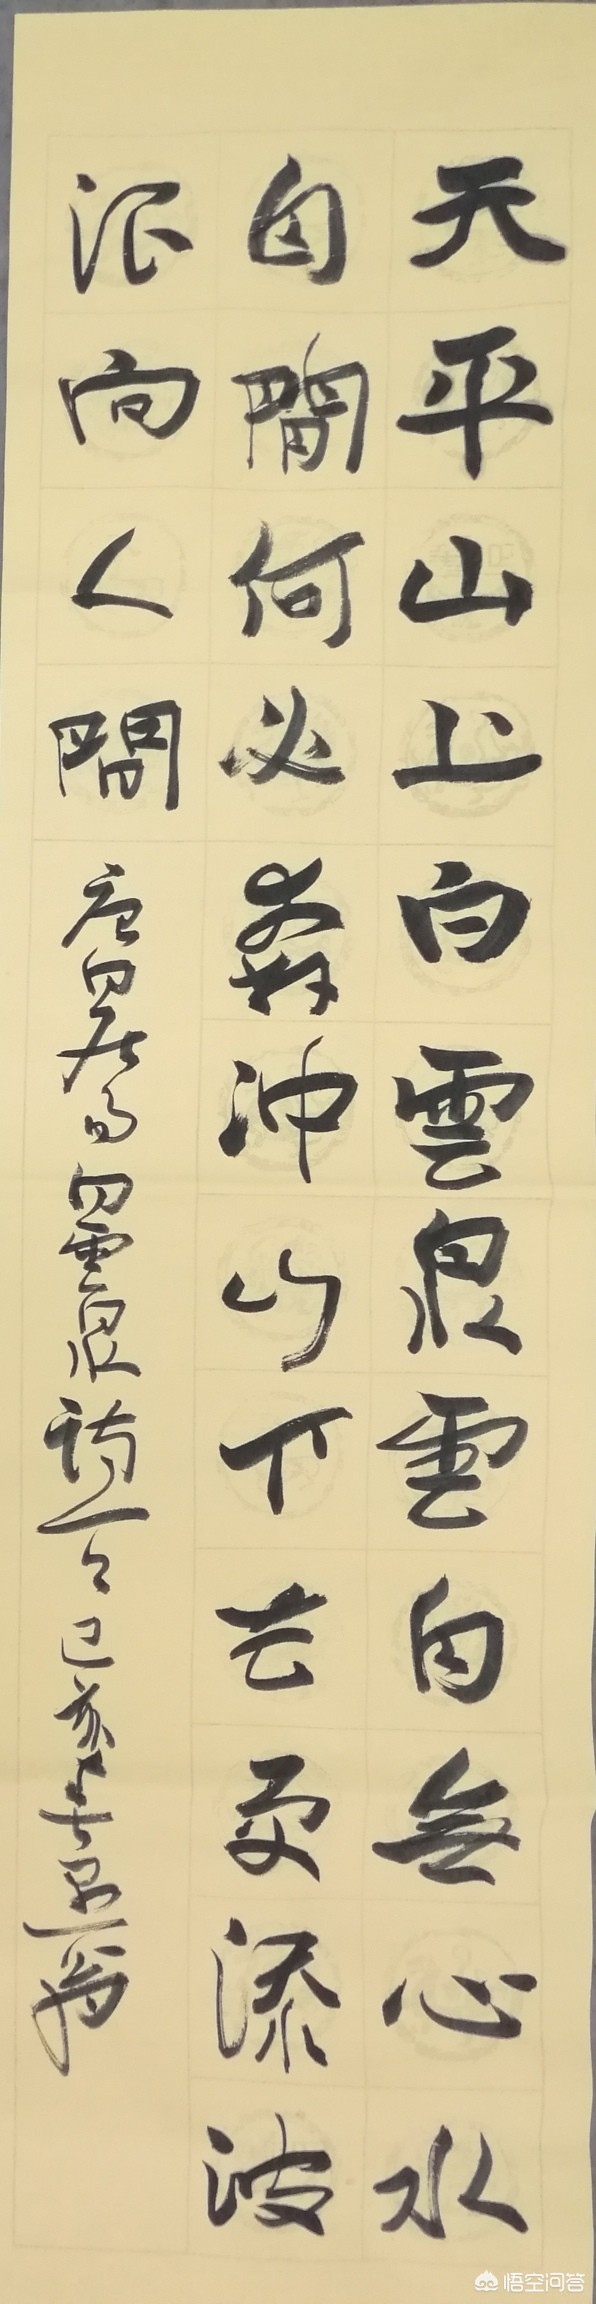 天平山上白雲泉雲自無心水
自閒何必奔沖山下去更添波
浪向人間
唐白居易白雲泉詩一首己亥
悟空问答